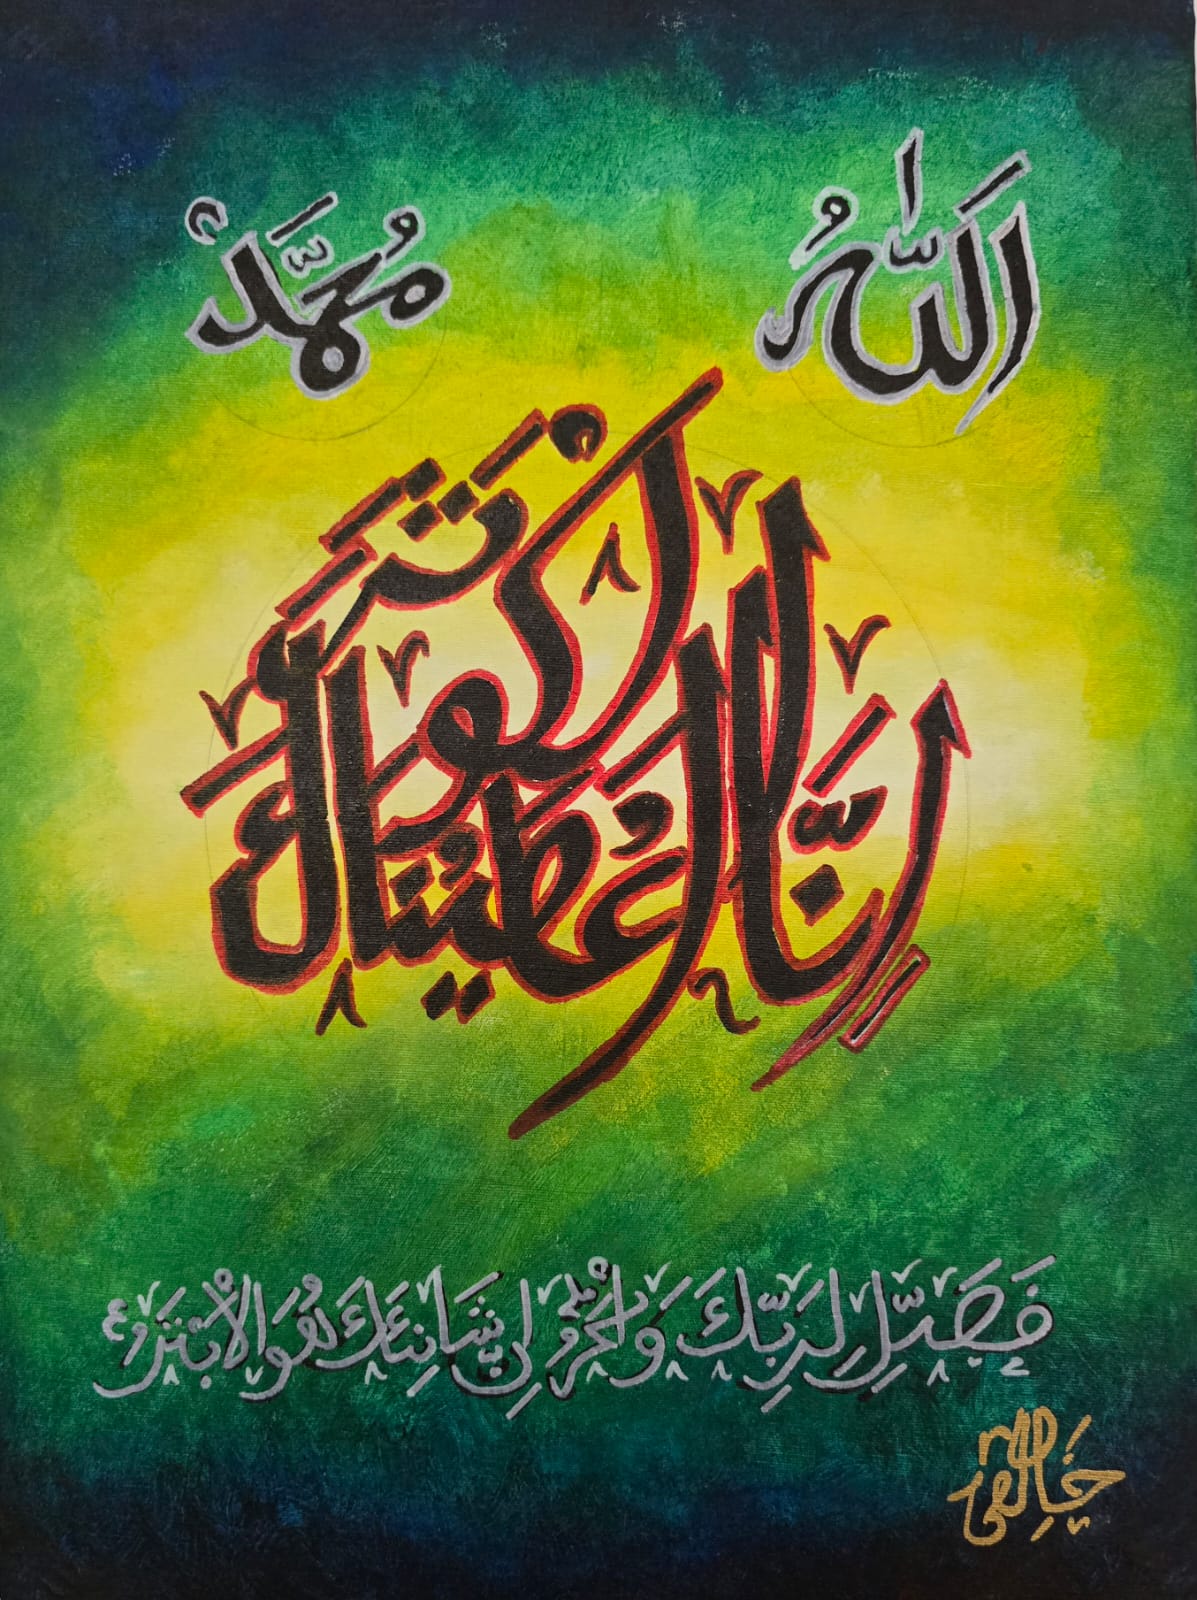 اَللّٰهُ مُحَمَّدٌ
اِنَّا اَعْطَيْنَاكَ الْكَوْثَرَ
فَصَلِّ لِرَبِّكَ وَانْحَرْ اِنَّ شَانِئَكَ هُوَ الْاَبْتَرُ